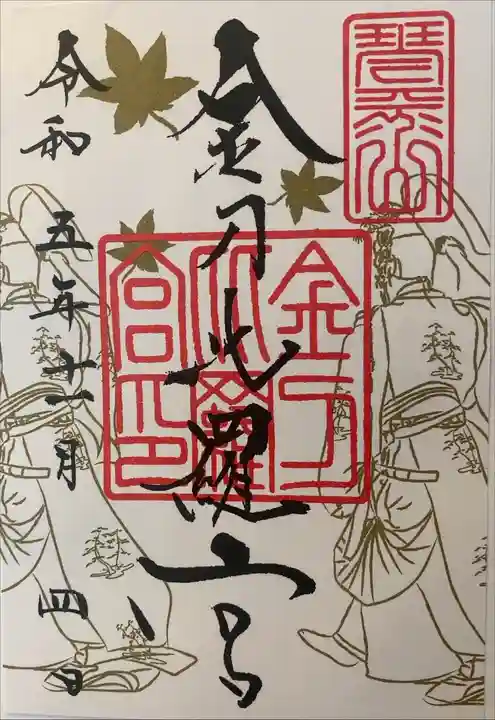 琴平山
金刀比羅宮
金刀
比羅
宮印
令和 五年十一月 四日